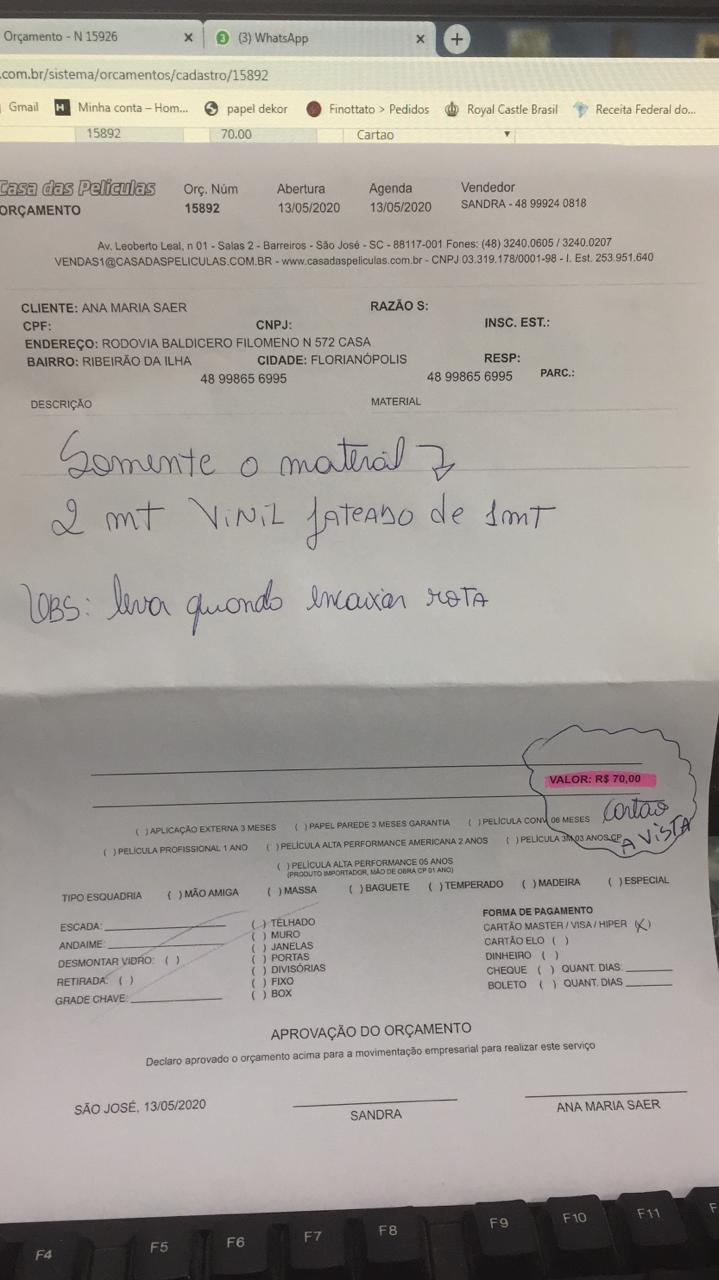 Orçamento - N 15926
(3) WhatsApp
.com.br/sistema/orcamentos/cadastro/15892
Gmail Minha conta – Hom... papel dekor Finottato > Pedidos Royal Castle Brasil Receita Federal do...
15892 70.00 Cartao
Casa das Películas Orç. Núm Abertura Agenda Vendedor
ORÇAMENTO 15892 13/05/2020 13/05/2020 SANDRA - 48 99924 0818
Av. Leoberto Leal, n 01 - Salas 2 - Barreiros - São José - SC - 88117-001 Fones: (48) 3240.0605 / 3240.0207
VENDAS1@CASADASPELICULAS.COM.BR - www.casadaspeliculas.com.br - CNPJ 03.319.178/0001-98 - I. Est. 253.951.640
CLIENTE: ANA MARIA SAER RAZÃO S:
CPF: CNPJ: INSC. EST.:
ENDEREÇO: RODOVIA BALDICERO FILOMENO N 572 CASA
BAIRRO: RIBEIRÃO DA ILHA CIDADE: FLORIANÓPOLIS RESP:
48 99865 6995 48 99865 6995 PARC.:
DESCRIÇÃO MATERIAL
Somente o material
2 mt VINIL JATEADO de 1mT
OBS: leva quando encaixar ROTA
VALOR: R$ 70,00
Cartao
A VISTA
( ) APLICAÇÃO EXTERNA 3 MESES ( ) PAPEL PAREDE 3 MESES GARANTIA ( ) PELÍCULA CONV. 06 MESES
( ) PELÍCULA PROFISSIONAL 1 ANO ( ) PELÍCULA ALTA PERFORMANCE AMERICANA 2 ANOS ( ) PELÍCULA 3M 03 ANOS CP
( ) PELÍCULA ALTA PERFORMANCE 05 ANOS
(PRODUTO IMPORTADOR, MÃO DE OBRA CP 01 ANO)
TIPO ESQUADRIA ( ) MÃO AMIGA ( ) MASSA ( ) BAGUETE ( ) TEMPERADO ( ) MADEIRA ( ) ESPECIAL
ESCADA:
ANDAIME:
DESMONTAR VIDRO: ( )
RETIRADA: ( )
GRADE CHAVE:
( ) TELHADO
( ) MURO
( ) JANELAS
( ) PORTAS
( ) DIVISÓRIAS
( ) FIXO
( ) BOX
FORMA DE PAGAMENTO
CARTÃO MASTER / VISA / HIPER (X)
CARTÃO ELO ( )
DINHEIRO ( )
CHEQUE ( ) QUANT. DIAS:
BOLETO ( ) QUANT. DIAS
APROVAÇÃO DO ORÇAMENTO
Declaro aprovado o orçamento acima para a movimentação empresarial para realizar este serviço
SÃO JOSÉ, 13/05/2020
SANDRA
ANA MARIA SAER
F4 F5 F6 F7 F8 F9 F10 F11